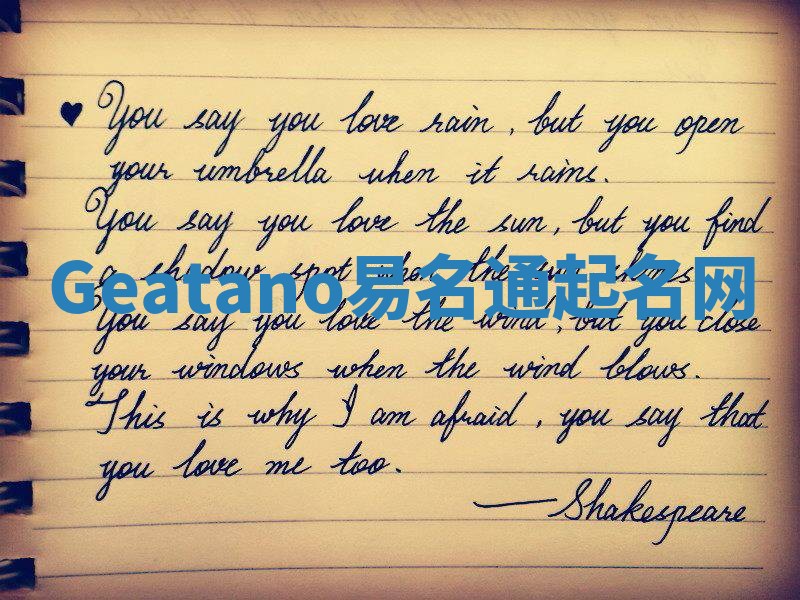 ♥ You say you love rain, but you open
your umbrella when it rains.
You say you love the sun, but you find
a shadow spot when the sun shines
Geatano易名通起名网
You say you love the wind, but you close
your windows when the wind blows.
This is why I am afraid, you say that
you love me too.
—Shakespeare